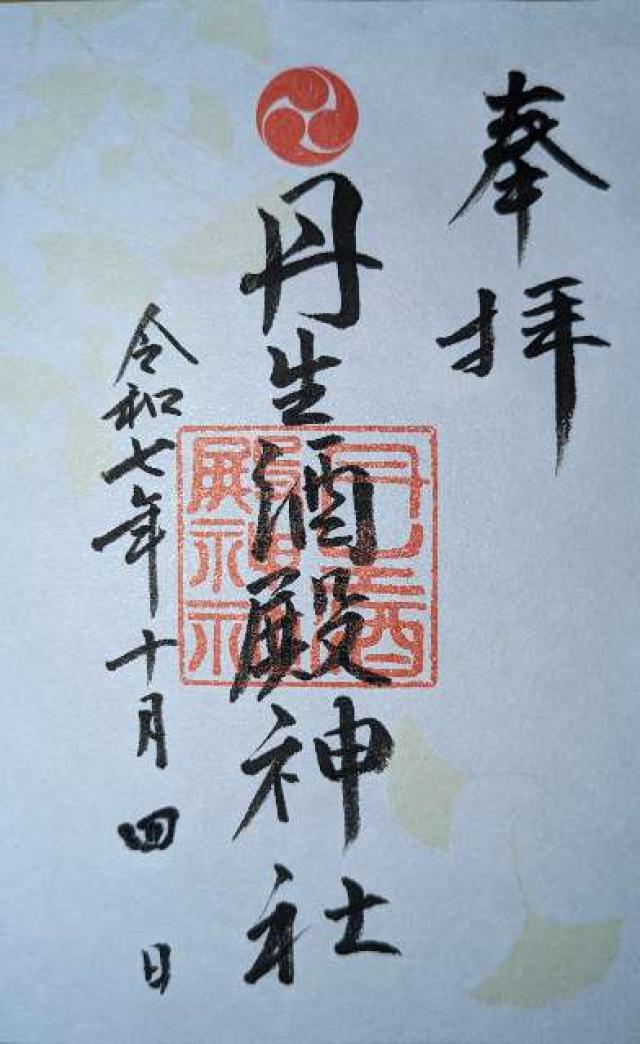 奉拝
丹生酒殿神社
丹生酒殿神社
令和七年十月四日